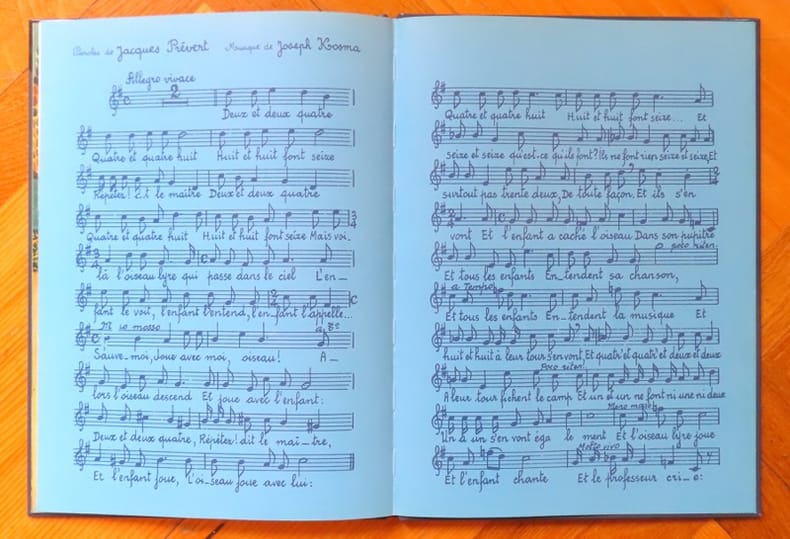 Paroles de Jacques Prévert Musique de Joseph Kosma
Allegro vivace
2
Deux et deux quatre
Quatre et quatre huit Huit et huit font seize
Répétez! dit le maître Deux et deux quatre
Quatre et quatre huit Huit et huit font seize Mais voi_
là l'oiseau lyre qui passe dans le ciel L'en_
fant le voit, l'enfant l'entend, l'en_fant l'appelle...
mosso
Sauve-moi, Joue avec moi, oiseau! A_
lors l'oiseau descend Et joue avec l'enfant:
Deux et deux quatre, Répétez! dit le maî_tre,
Et l'enfant joue, L'oi_seau joue avec lui:
Quatre et quatre huit Huit et huit font seize... Et
seize et seize qu'est-ce qu'ils font? Ils ne font rien seize et seize, Et
surtout pas trente deux, De toute façon, Et ils s'en
vont Et l'enfant a caché l'oiseau Dans son pupitre
poco riten.
Et tous les enfants En_tendent sa chanson,
a Tempo
Et tous les enfants En_tendent la musique Et
huit et huit à leur tour s'en vont, Et quatr' et quatr' et deux et deux
Poco riten
A leur tour fichent le camp Et un et un ne font ni une ni deux
Meno mosso
Un à un s'en vont éga le ment Et l'oiseau lyre joue
Molto vivo
Et l'enfant chante Et le professeur cri_e: